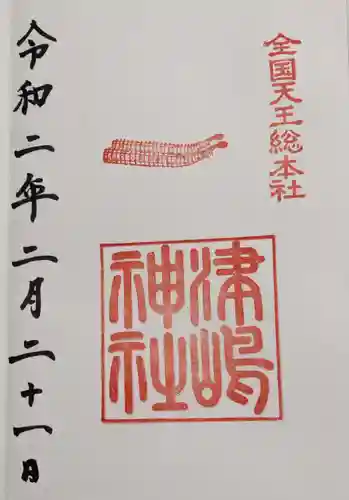 全国天王総本社
津嶋
神社
令和二年二月二十一日